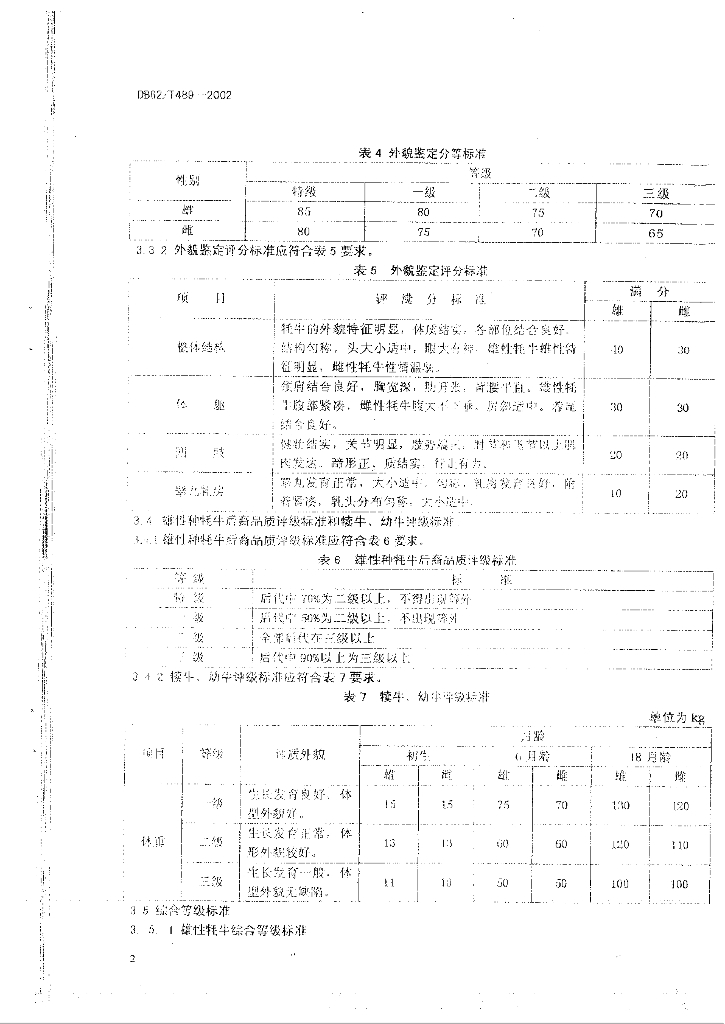 DB62/T489—2002
表4 外貌鉴定分等标准
性别 等级
特级 一级 二级 三级
雄 85 80 75 70
雌 80 75 70 65
3.3.2 外貌鉴定评分标准应符合表5要求。
表5 外貌鉴定评分标准
项 目 评 满 分 标 准 满 分
雄 雌
牦牛的外貌特征明显，体质结实，各部位结合良好，
整体结构 结构匀称，头大小适中，眼大有神，雄性牦牛雄性特 40 30
征明显，雌性牦牛性情温驯。
颈肩结合良好，胸宽深，肋开张，背腰平直，雄性牦
体 躯 牛腹部紧凑，雌性牦牛腹大不下垂，尻斜适中。
30 30
结合良好。
四 肢 健壮结实，关节明显，肢势端正，
20 20
肉发达，蹄形正，质结实，行走有力。
睾丸乳房 睾丸发育正常，大小适中，匀称，乳房发育良好，附
10 20
着紧凑，乳头分布匀称，大小适中。
3.4 雄性种牦牛后裔品质评级标准和犊牛、幼牛评级标准
3.4.1 雄性种牦牛后裔品质评级标准应符合表6要求。
表6 雄性种牦牛后裔品质评级标准
等 级 标 准
特 级 后代中70%为二级以上，不得出现等外
一 级 后代中50%为二级以上，不出现等外
二 级 全部后代在三级以上
三 级 后代中90%以上为三级以上
3.4.2 犊牛、幼牛评级标准应符合表7要求。
表7 犊牛、幼牛评级标准
单位为 kg
月龄
项目 等级 体质外貌 初生 6月龄 18月龄
雄 雌 雄 雌 雄 雌
一级 生长发育良好，体
型外貌好。
15 15 75 70 130 120
体重 二级 生长发育正常，体
形外貌较好。
13 13 60 60 120 110
三级 生长发育一般，体
型外貌无缺陷。
11 10 50 50 100 100
3.5 综合等级标准
3.5.1 雄性牦牛综合等级标准
2